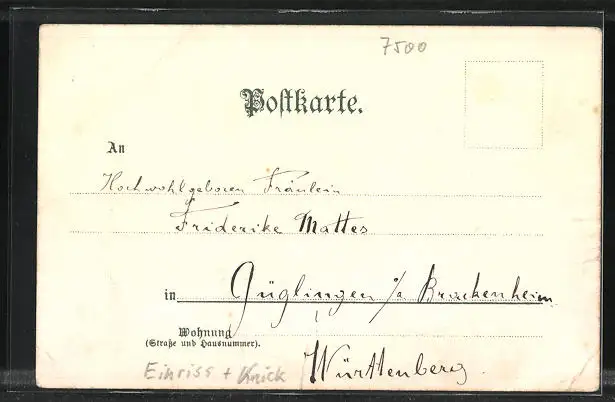 7500
Postkarte.
An
Hochwohlgeboren Fräulein
Friderike Mattes
in Güglingen a/ Brackenheim
Wohnung
(Straße und Hausnummer).
Württenberg.
Einriss + Knick